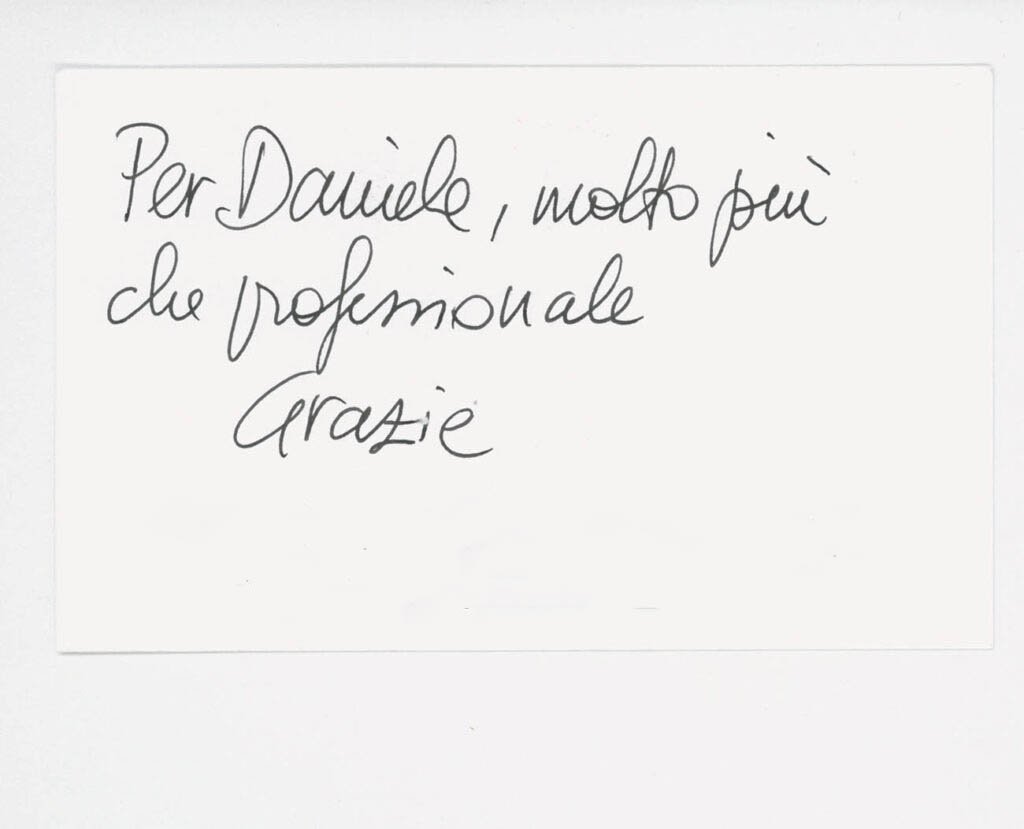 Per Daniele, molto più
che professionale
Grazie